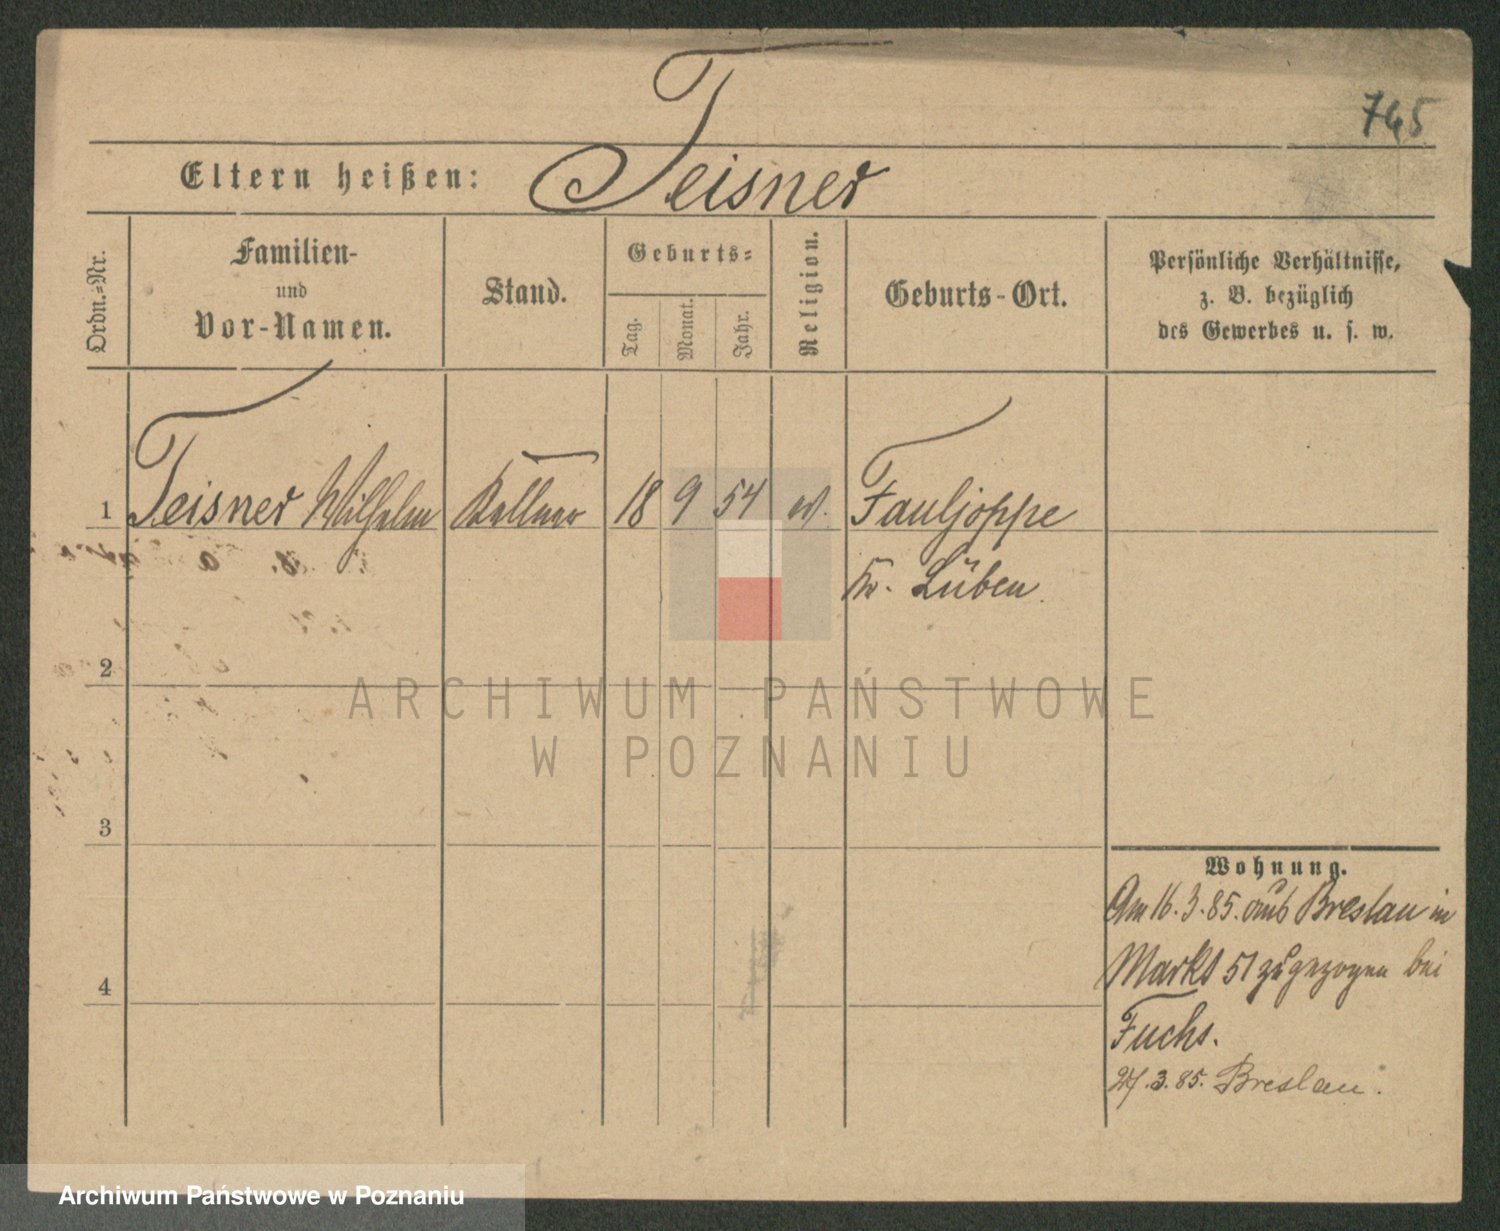 745
Eltern heißen: Teisner
Ordn.-Nr.
Familien-
und
Vor-Namen.
Stand.
Geburts-
Tag.
Monat.
Jahr.
Religion.
Geburts-Ort.
Persönliche Verhältnisse,
z. B. bezüglich
des Gewerbes u. s. w.
1 Teisner Wilhelm Kellner 18 9 54 ev. Fauljoppe
Kr. Lüben
2
3
4
Wohnung.
Am 16.3.85. aus Breslau in
Markt 51 zugezogen bei
Fuchs.
27.3.85. Breslau.
ARCHIWUM PAŃSTWOWE
W POZNANIU
Archiwum Państwowe w Poznaniu